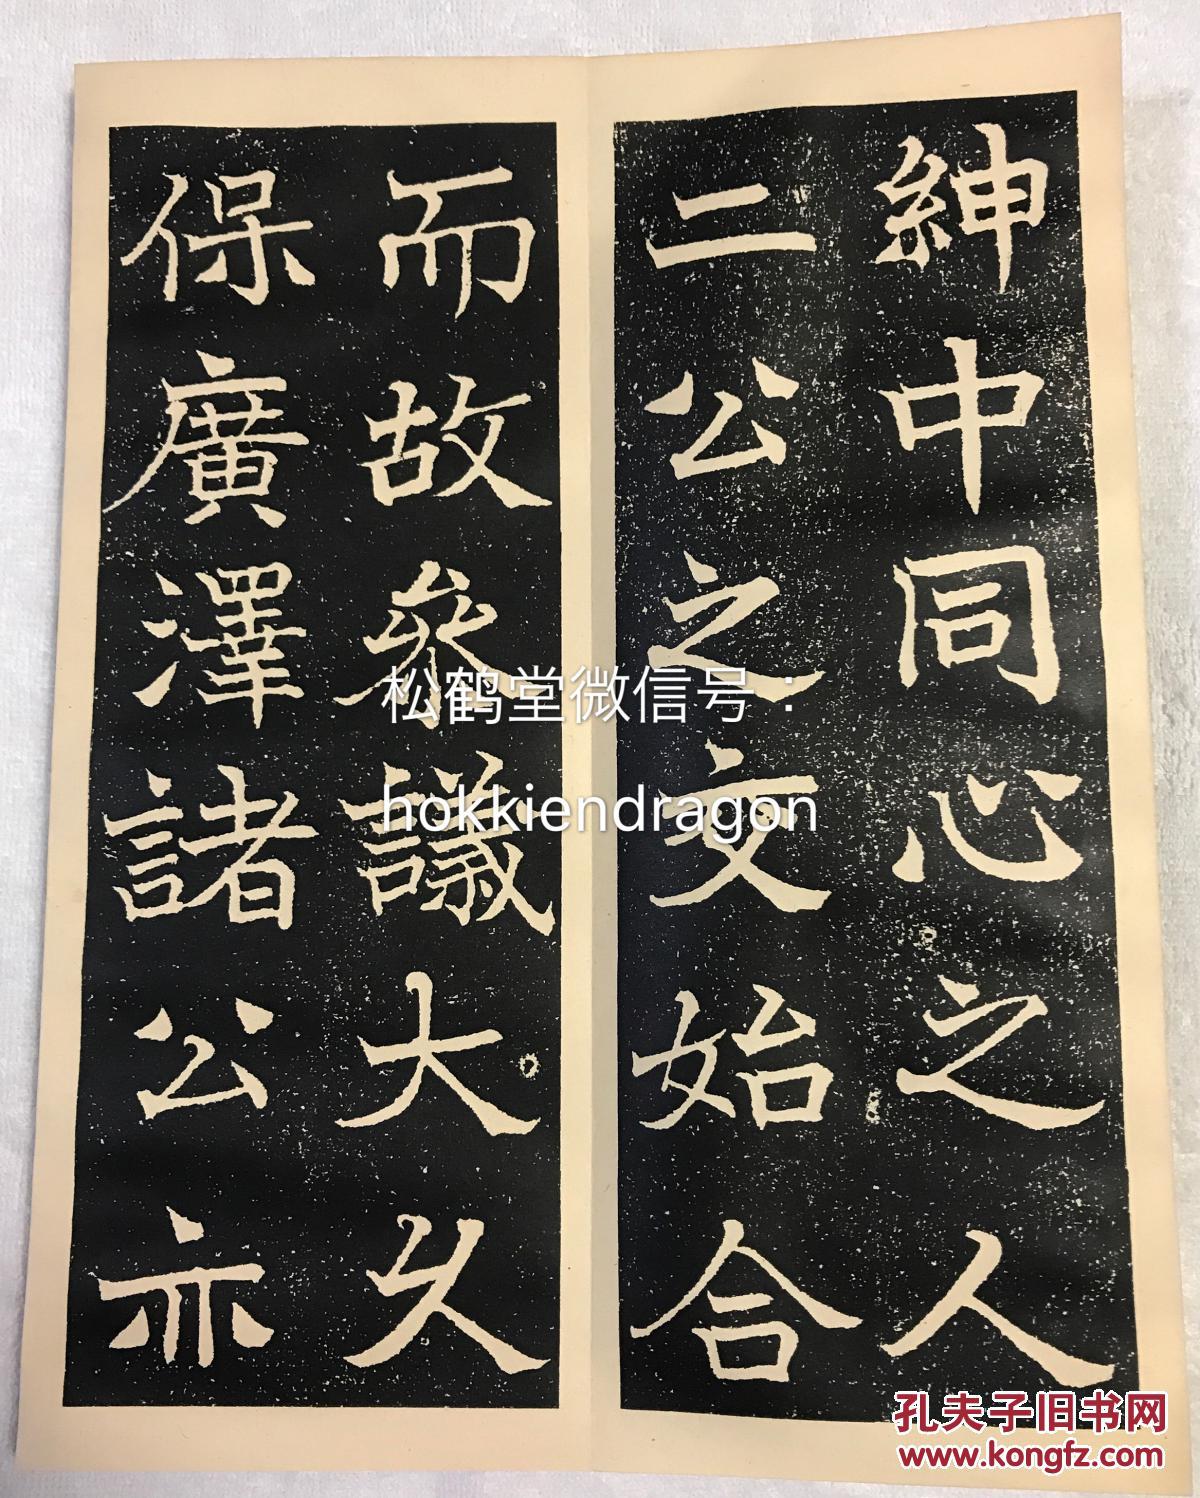 紳中同心之人
二公之交始合
而故參議大久
保廣澤諸公亦
松鹤堂微信号：
hokkiendragon
孔夫子旧书网
www.kongfz.com